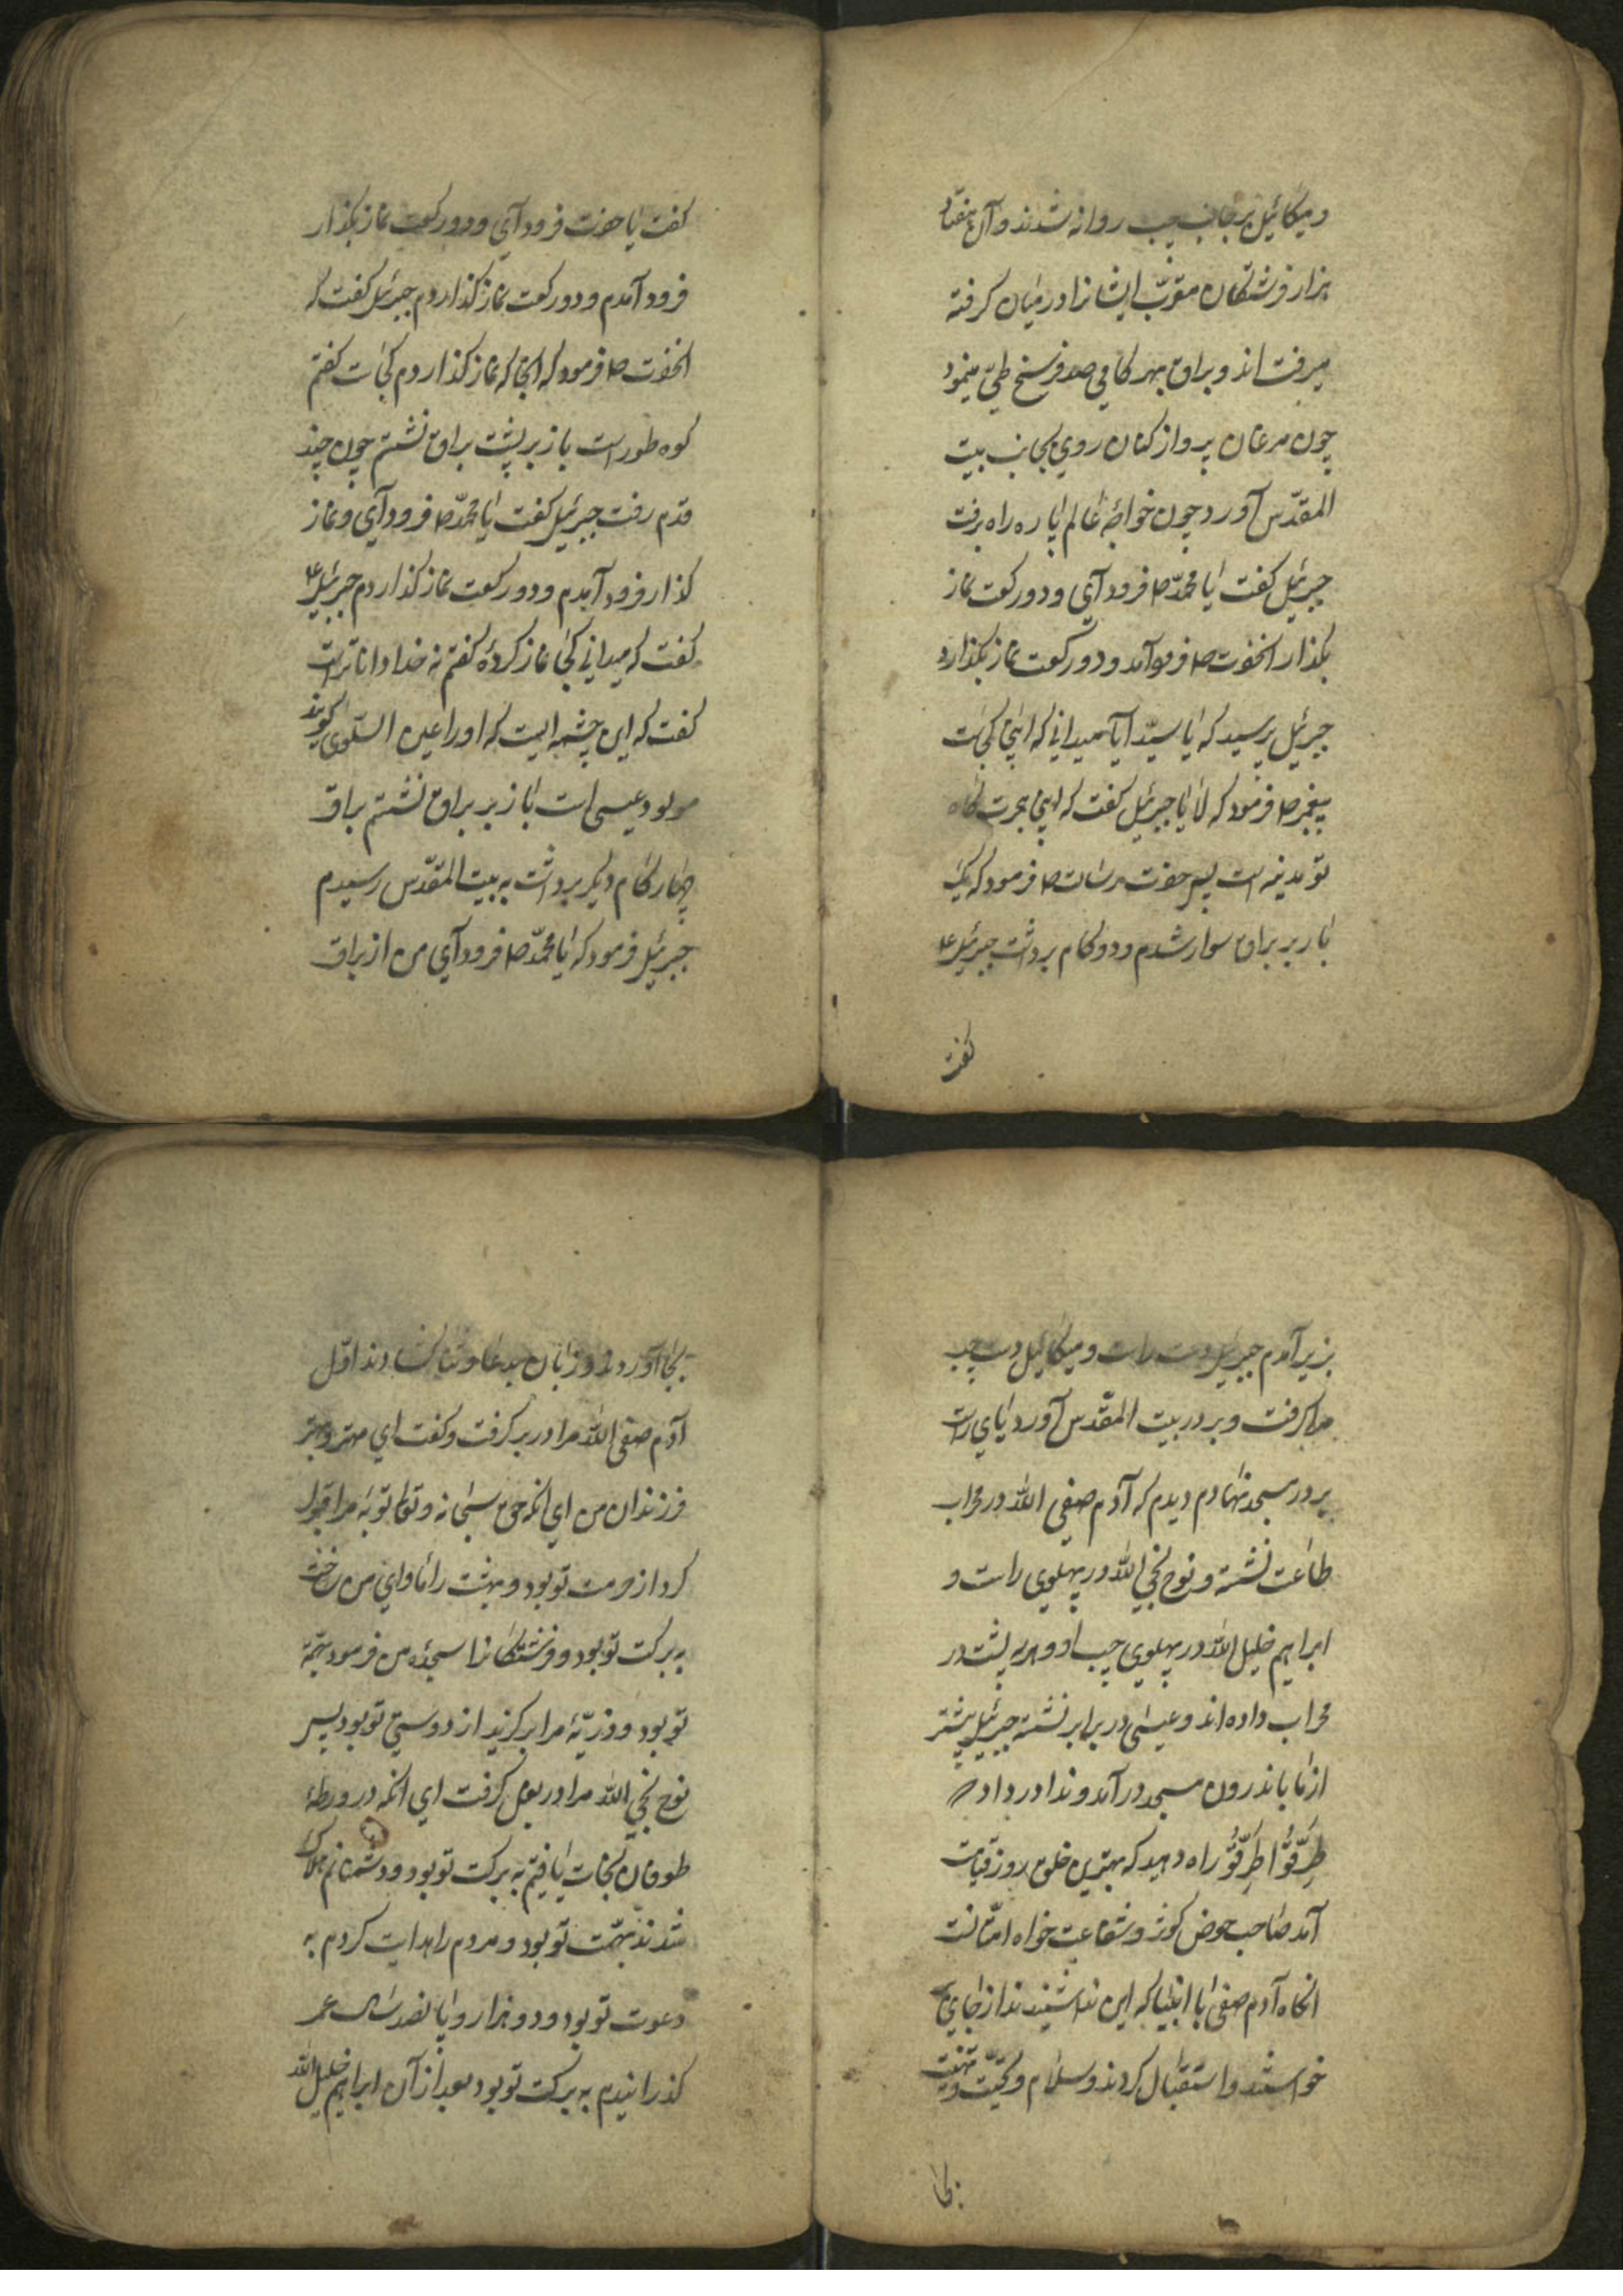 و میکائیل بر جانب چپ روانه شدند و آن هفتاد
هزار فرشتکان مقرّب ایشانرا در میان کرفته
میرفته اند و براق بهر کامی صد فرسخ طیّ مینمود
چون مرغان پرواز کنان روی بجانب بیت
المقدّس آورد چون خواجۀ عالم پاره راه برفت
جبرئیل کفت یا محمّد ص فرود آی و دو رکعت نماز
بکذار انحضرت ص فرود آمد و دو رکعت نماز بکذارد
جبرئیل پرسید که یا سیّد آیا میدانی که اینجا کجاست
پیغمبر ص فرمود که لا یا جبرئیل کفت که اینجا هجرت کاه
تو مدینه است پس حضرت رسالت ص فرمود که یک
بار بر براق سوار شدم و دو کام برداشت جبرئیل ع
کفت
کفت یا حضرت فرود آی و دو رکعت نماز بکذار
فرود آمدم و دو رکعت نماز کذاردم جبرئیل کفت که
انحضرت ص فرمود که اینجا که نماز کذاردم کجاست کفتم
کوه طور است باز بر پشت براق نشستم چون چند
قدم رفت جبرئیل کفت یا محمّد ص فرود آی و نماز
کذار فرود آمدم و دو رکعت نماز کذاردم جبرئیل ع
کفت که میدانی کجا نماز کردۀ کفتم نه خدا داناتر است
کفت که این چشمه ایست که او را عین السّلوی کویند
مولود عیسی است باز بر براق نشستم براق
چهار کام دیکر برداشت به بیت المقدّس رسیدم
جبرئیل فرمود که یا محمّد ص فرود آی من از براق
بزیر آمدم جبرئیل دست راست و میکائیل دست چپ
مرا کرفت و بر در بیت المقدّس آورد پای راست
بر در مسجد نهادم دیدم که آدم صفی الله در محراب
طاعت نشسته و نوح نجی الله در پهلوی راست و
ابراهیم خلیل الله در پهلوی چپ او و همه پشت در
محراب داده اند و عیسی در برابر نشسته جبرئیل پیشتر
از ما باندرون مسجد در آمد و ندا در داد که
طرّقوا طرّقوا راه دهید که بهترین خلق روز قیامت
آمد صاحب حوض کوثر و شفاعت خواه امّتانست
انکاه آدم صفی با انبیا که این ندا شنیدند از جای
خواستند و استقبال کردند و سلام و تحیّت و تهنیت
بجا
بجا آوردند و زبان بدعا و ثنا کشادند اوّل
آدم صفی الله مرا در بر کرفت و کفت ای مهتر و بهتر
فرزندان من ای انکه حق سبحانه و تعالی توبۀ مرا قبول
کرد از حرمت تو بود و بهشت را ماوای من ساخت
به برکت تو بود و فرشتکانرا سجدۀ من فرمود بجهة
تو بود و ذریّۀ مرا برکزید از دوستی تو بود پس
نوح نجی الله مرا در بغل کرفت ای انکه در ورطۀ
طوفان نجات یافتم به برکت تو بود و دشمنانم هلاک
شدند بهمّت تو بود و مردم را هدایت کردم به
دعوت تو بود و دو هزار و پانصد سال عمر
کذرانیدم به برکت تو بود بعد از آن ابراهیم خلیل الله